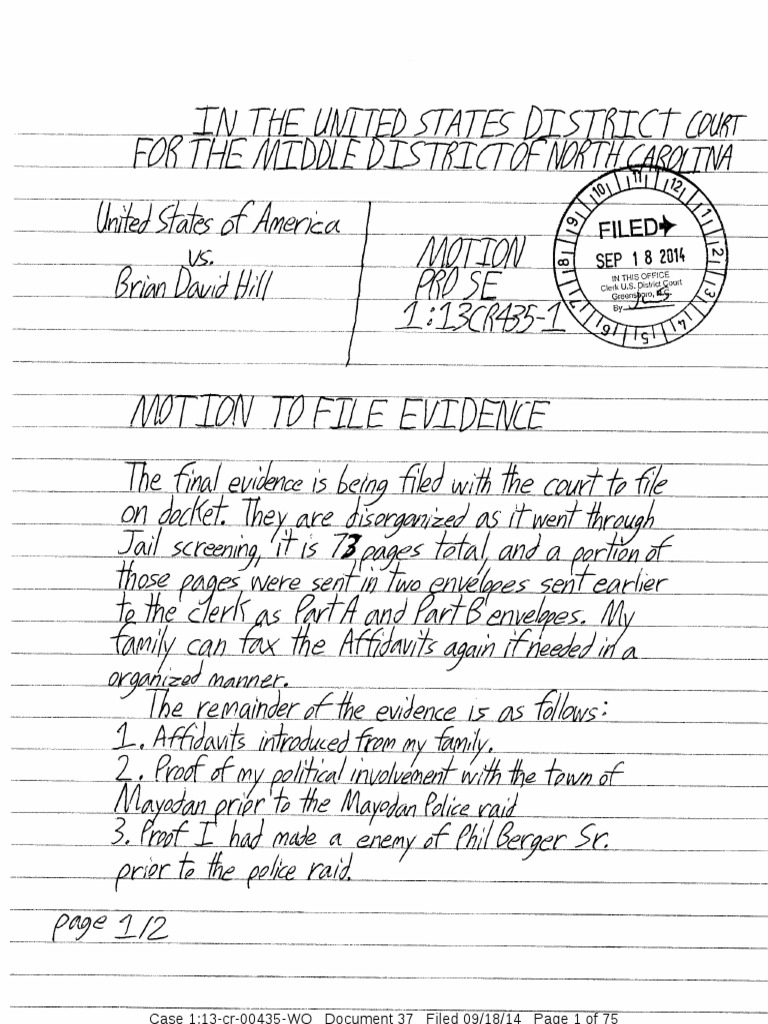 IN THE UNITED STATES DISTRICT COURT
FOR THE MIDDLE DISTRICT OF NORTH CAROLINA
United States of America
vs.
Brian David Hill
MOTION
PRO SE
1:13CR435-1
10 11 12 1 2 3 4 5 6 7 8 9
FILED
SEP 18 2014
IN THIS OFFICE
Clerk U.S. District Court
Greensboro, N.C.
By
MOTION TO FILE EVIDENCE
The final evidence is being filed with the court to file
on docket. They are disorganized as it went through
Jail screening, it is 73 pages total, and a portion of
those pages were sent in two envelopes sent earlier
to the clerk as Part A and Part B envelopes. My
family can fax the Affidavits again if needed in a
organized manner.
The remainder of the evidence is as follows:
1. Affidavits introduced from my family.
2. Proof of my political involvement with the town of
Mayodan prior to the Mayodan Police raid
3. Proof I had made a enemy of Phil Berger Sr.
prior to the police raid.
page 1/2
Case 1:13-cr-00435-WO Document 37 Filed 09/18/14 Page 1 of 75